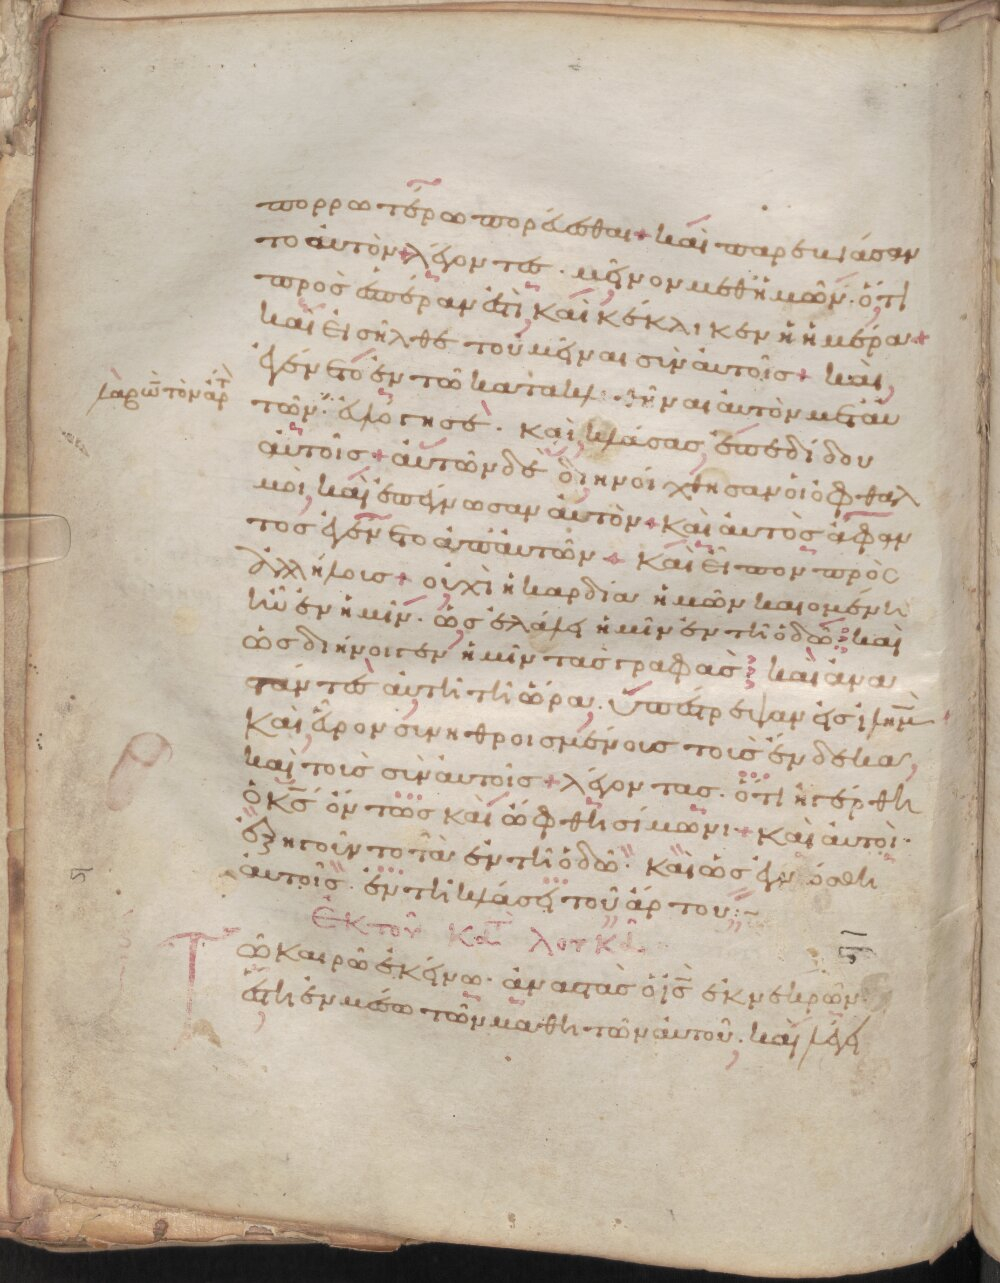 πορρωτέρω πορεύεσθαι + καὶ παρεβιάσαν
το αυτὸν + λέγοντες · μεῖνον μεθ ἡμῶν · ὅτι
πρὸς ἑσπέραν ἐστὶ, καὶ κέκλικεν ἡ ἡμέρα +
καὶ εἰσῆλθε τοῦ μεῖναι σὺν αυτοῖς + καὶ,
ἐγένετο ἐν τῶ κατακλιθῆναι ἀυτὸν μετ ἀυ
λαβῶν τὸν ἄρτ
τῶν · ἐυλόγησε · καὶ κλάσας, ἐπεδίδου
ἀυτοῖς + ἀυτῶν δὲ διηνοίχθησαν οἱ ὀφθαλ
μοὶ, καὶ ἐπέγνωσαν ἀυτὸν + καὶ αυτὸς ἄφαν
τος ἐγένετο ἀπ ἀυτῶν + καὶ εἶπον πρὸς
ἀλλήλοις + οὐχὶ ἡ καρδία ἡμῶν καιομένη
ἦν ἐν ἡμῖν · ὡς ἐλάλει ἡμῖν ἐν τῆ ὁδῶ · καὶ
ὡς διήνοιγεν ἡμῖν τὰς γραφὰς · καὶ ἀνα
στάντες ἀυτῆ τῆ ὥρα · ὑπέστρεψαν εἰς ἱλημ
καὶ, εὗρον συνηθροισμένους τοὺς ἕνδεκα,
καὶ τοὺς σὺν ἀυτοῖς + λέγοντας · ὅτι ἠγέρθη
ὁ κς ὄντως καὶ ὤφθη σίμωνι + καὶ ἀυτοὶ ·
ἐξηγοῦντο τὰ ἐν τῆ ὁδῶ · καὶ ὡς ἐγνώσθη
ἀυτοῖς · ἐν τῆ κλάσει τοῦ ἄρτου :~
Ἐκ τοῦ κατ λουκᾶ.
Τῶ καιρῶ ἐκείνω · ἀναστὰς ὁ ις ἐκ νεκρῶν
ἔστη ἐν μέσω τῶν μαθητῶν ἀυτοῦ · καὶ λέγει